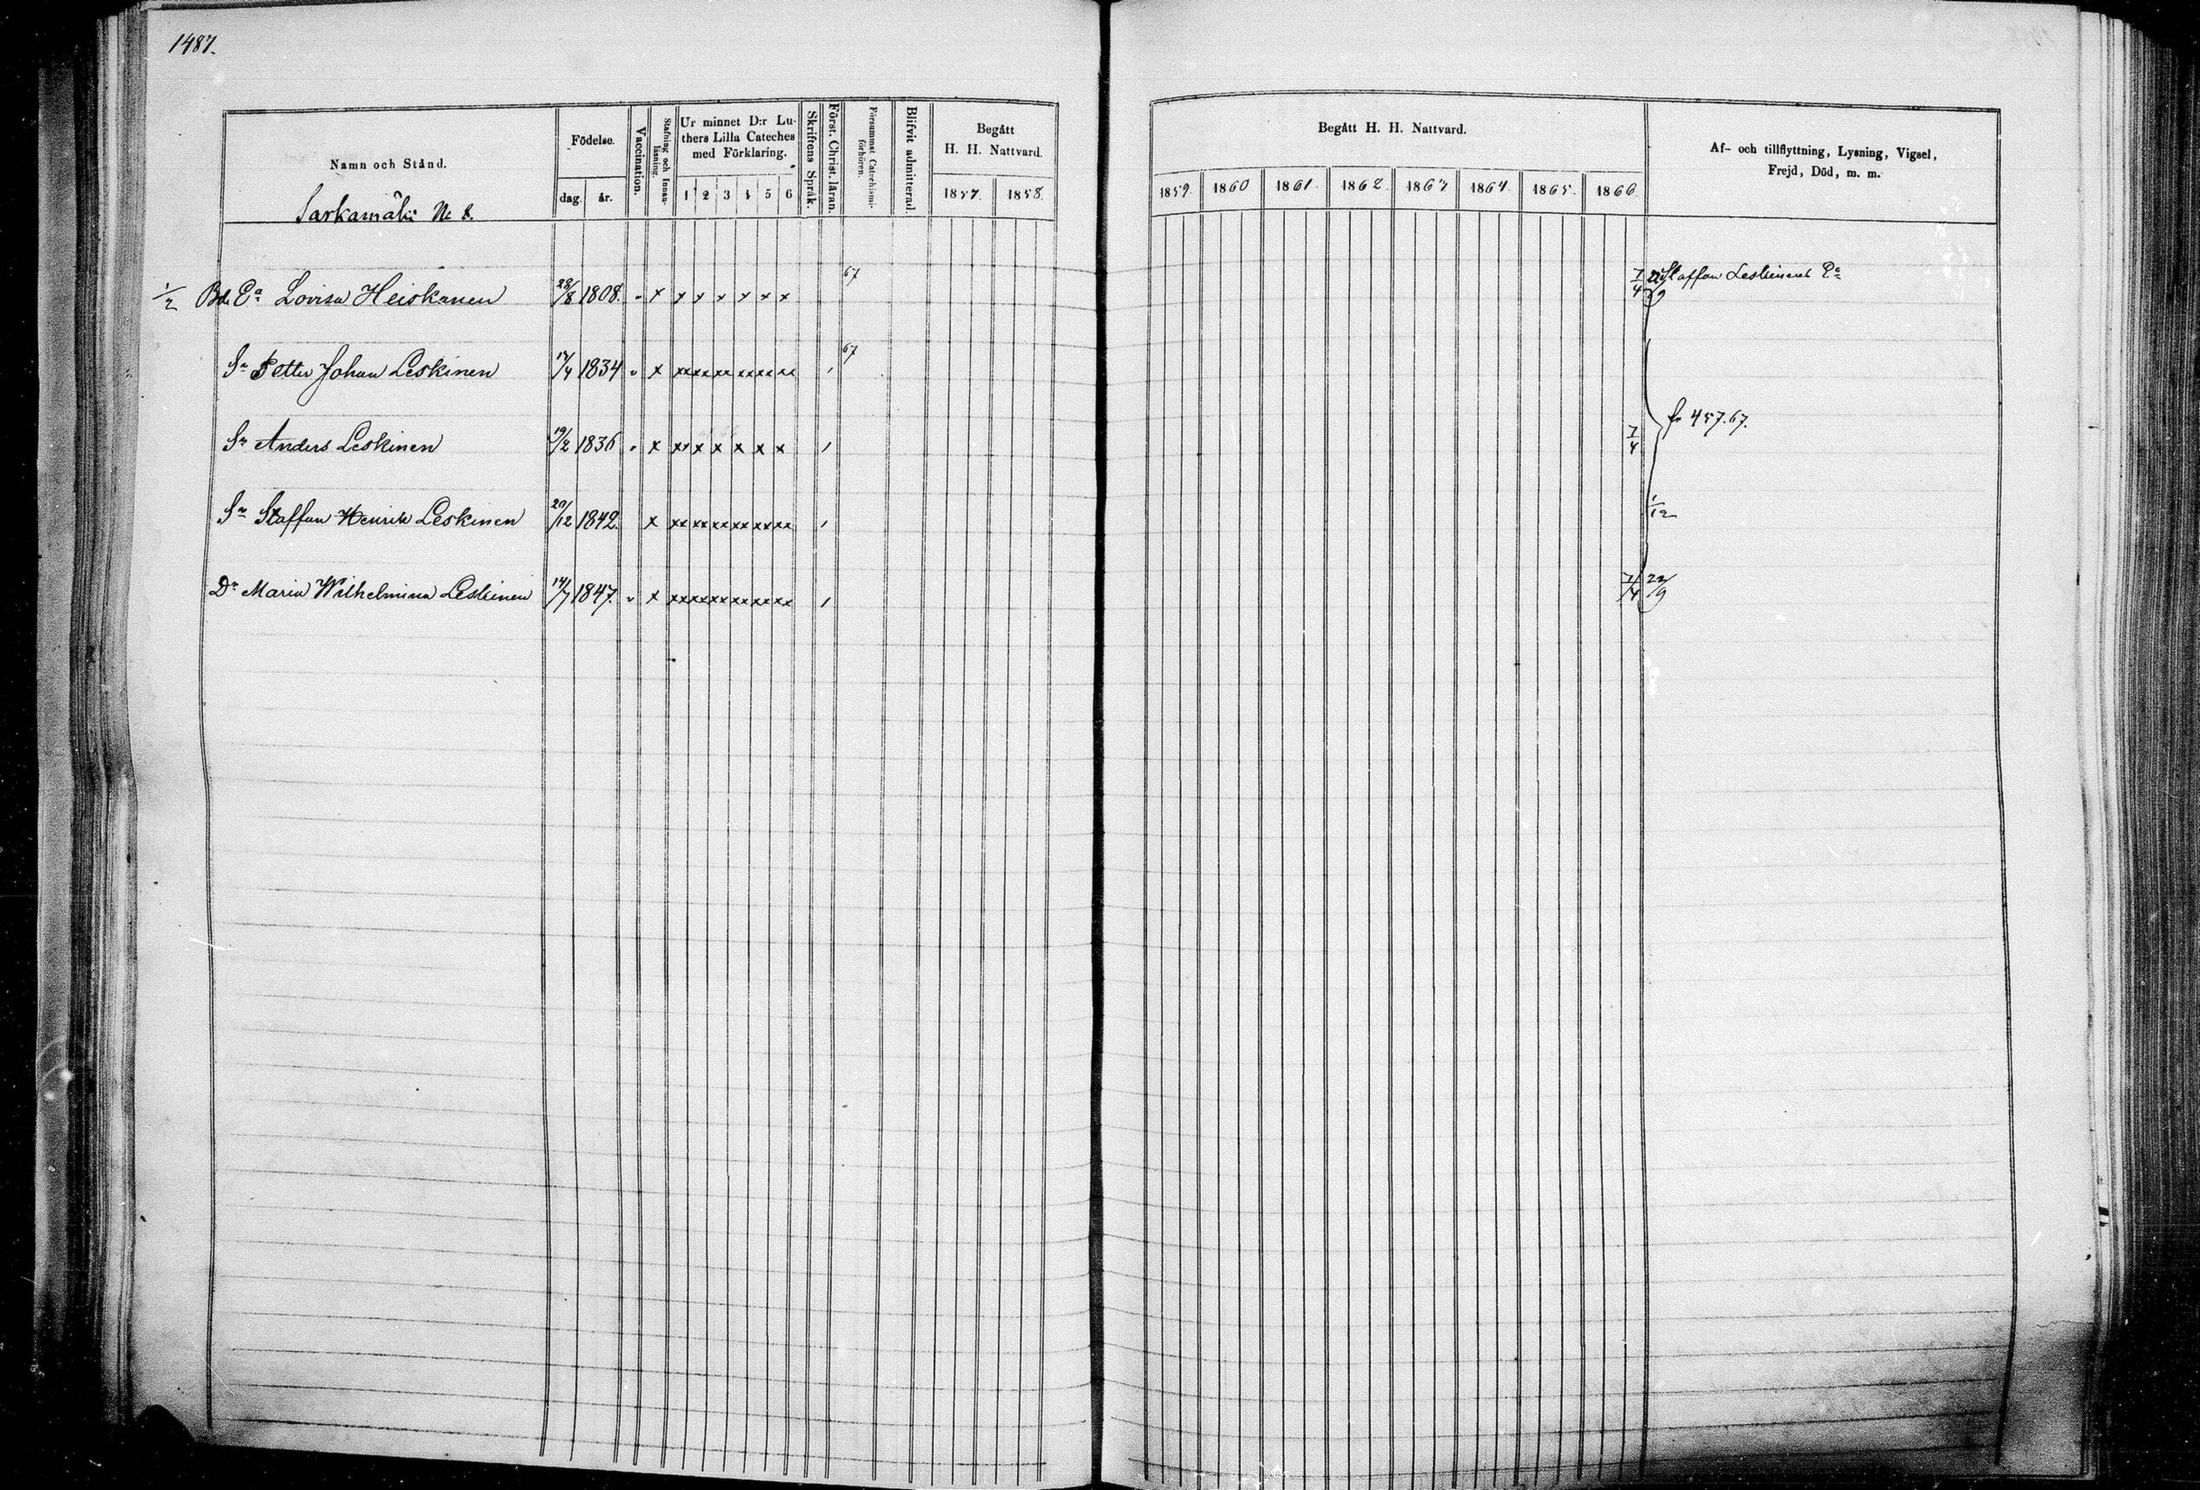 1487.
Namn och Stånd.
Födelse.
dag.
år.
Vaccination.
Stafning och Innan-
läsning.
Ur minnet D:r Lu-
thers Lilla Cateches
med Förklaring.
1 2 3 4 5 6
Skriftens Språk.
Först. Christ. läran.
Försummat Catechismi-
förhören.
Blifvit admitterad.
Begått
H. H. Nattvard.
1857. 1858.
Sarkamäki No 8.
Begått H. H. Nattvard.
1859. 1860 1861. 1862. 1863 1864. 1865. 1866.
Af- och tillflyttning, Lysning, Vigsel,
Frejd, Död, m. m.
1/2 Bd. Ea Lovisa Heiskanen 28/8 1808. x x x x x x x 67 7/4 22/9 Staffan Leskinens Ea
Sn Petter Johan Leskinen 17/4 1834 x xx xx xx xx xx xx 67
fr 457.67.
Sn Anders Leskinen 19/2 1836 x xx x x x x x 7/4
Sn Staffan Henrik Leskinen 20/12 1842. x xx xx xx xx xx xx 1/12
Dr Maria Wilhelmina Leskinen 14/7 1847. x xx xx xx xx xx xx 7/4 22/9